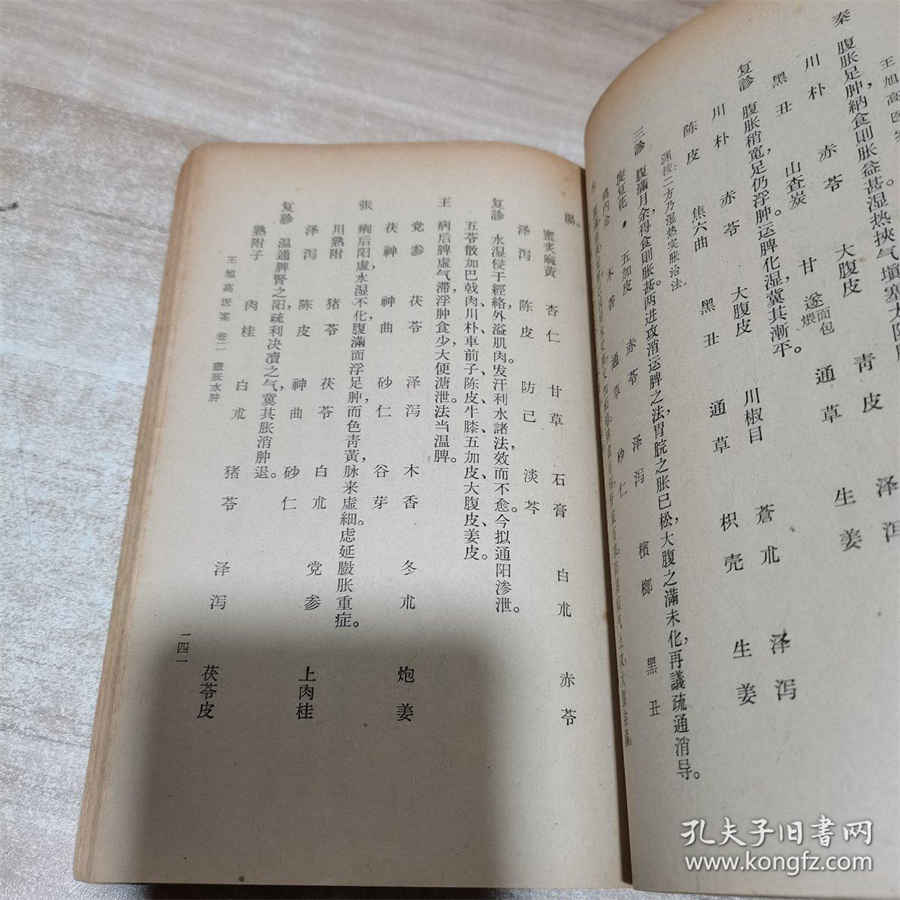 王旭高医案
秦 腹胀足肿,納食則胀益甚,湿热挾气填塞太阴
川朴 赤苓 大腹皮 青皮 泽泻
黑丑 山查炭 甘遂面包煨 通草 生姜
复診 腹胀稍宽,足仍浮肿。运脾化湿,冀其漸平。
川朴 赤苓 大腹皮 川椒目 蒼朮 泽泻
陈皮 焦六曲 黑丑 通草 枳壳 生姜
渊按:二方乃湿热实胀治法。
三診 腹滿月余,得食則胀甚。两进攻消运脾之法,胃脘之胀已松,大腹之滿未化,再議疏通消导。
旋复花 五加皮 赤苓 泽泻 檳榔 黑丑
鸡内金 木香 通草 砂仁
腸。
蜜炙麻黃 杏仁 甘草 石膏 白朮 赤苓
泽泻 陈皮 防已 淡芩
复診 水湿侵于經絡,外溢肌肉,发汗利水諸法,效而不愈。今拟通阳渗泄。
五苓散加巴戟肉、川朴、車前子、陈皮、牛膝、五加皮、大腹皮、姜皮。
王 病后脾虛气滞,浮肿食少,大便溏泄。法当温脾。
党参 茯苓 泽泻 木香 冬朮 炮姜
茯神 神曲 砂仁 谷芽
張 病后阳虛,水湿不化,腹滿而浮,足肿,而色青黃,脉来虛細。虑延臌胀重症。
川熟附 猪苓 茯苓 白朮 党参 上肉桂
泽泻 陈皮 神曲 砂仁
复診 温通脾腎之阳,疏利决瀆之气,冀其胀消肿退。
熟附子 肉桂 白朮 猪苓 泽泻 茯苓皮
王旭高医案 卷二 臌胀水肿
一四一
孔夫子旧书网
www.kongfz.com